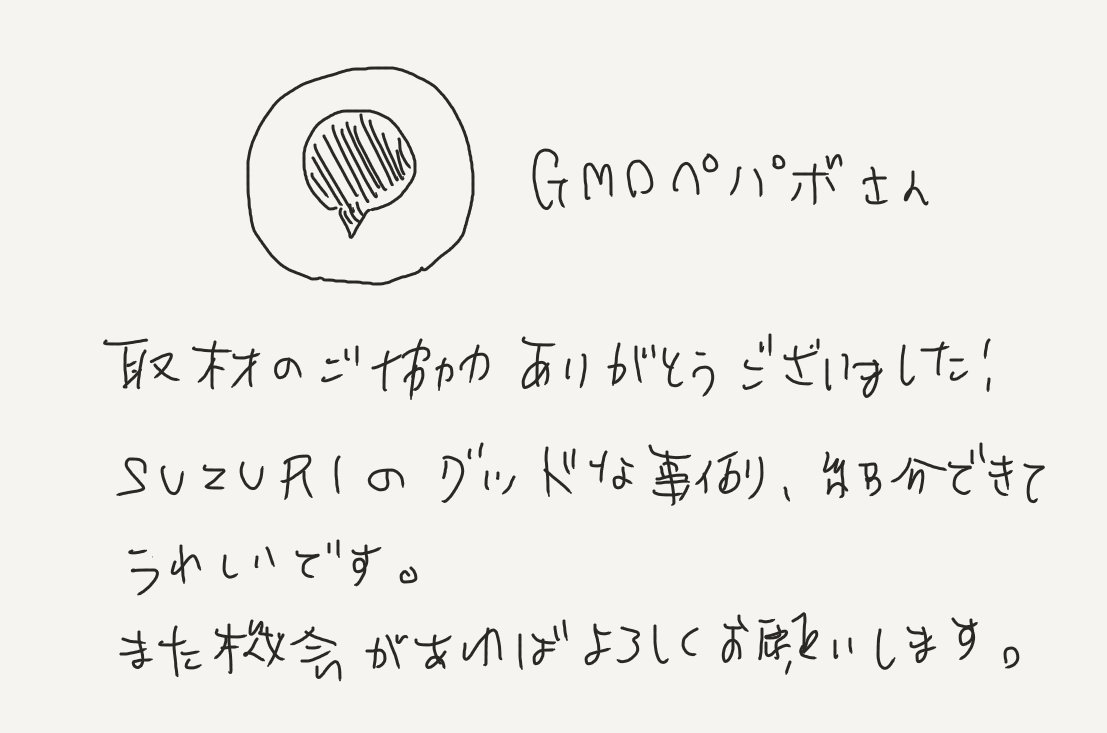 GMOペパボさん
取材のご協力ありがとうございました！
SUZURIのグッドな事例、紹介できて
うれしいです。
また機会があればよろしくお願いします。